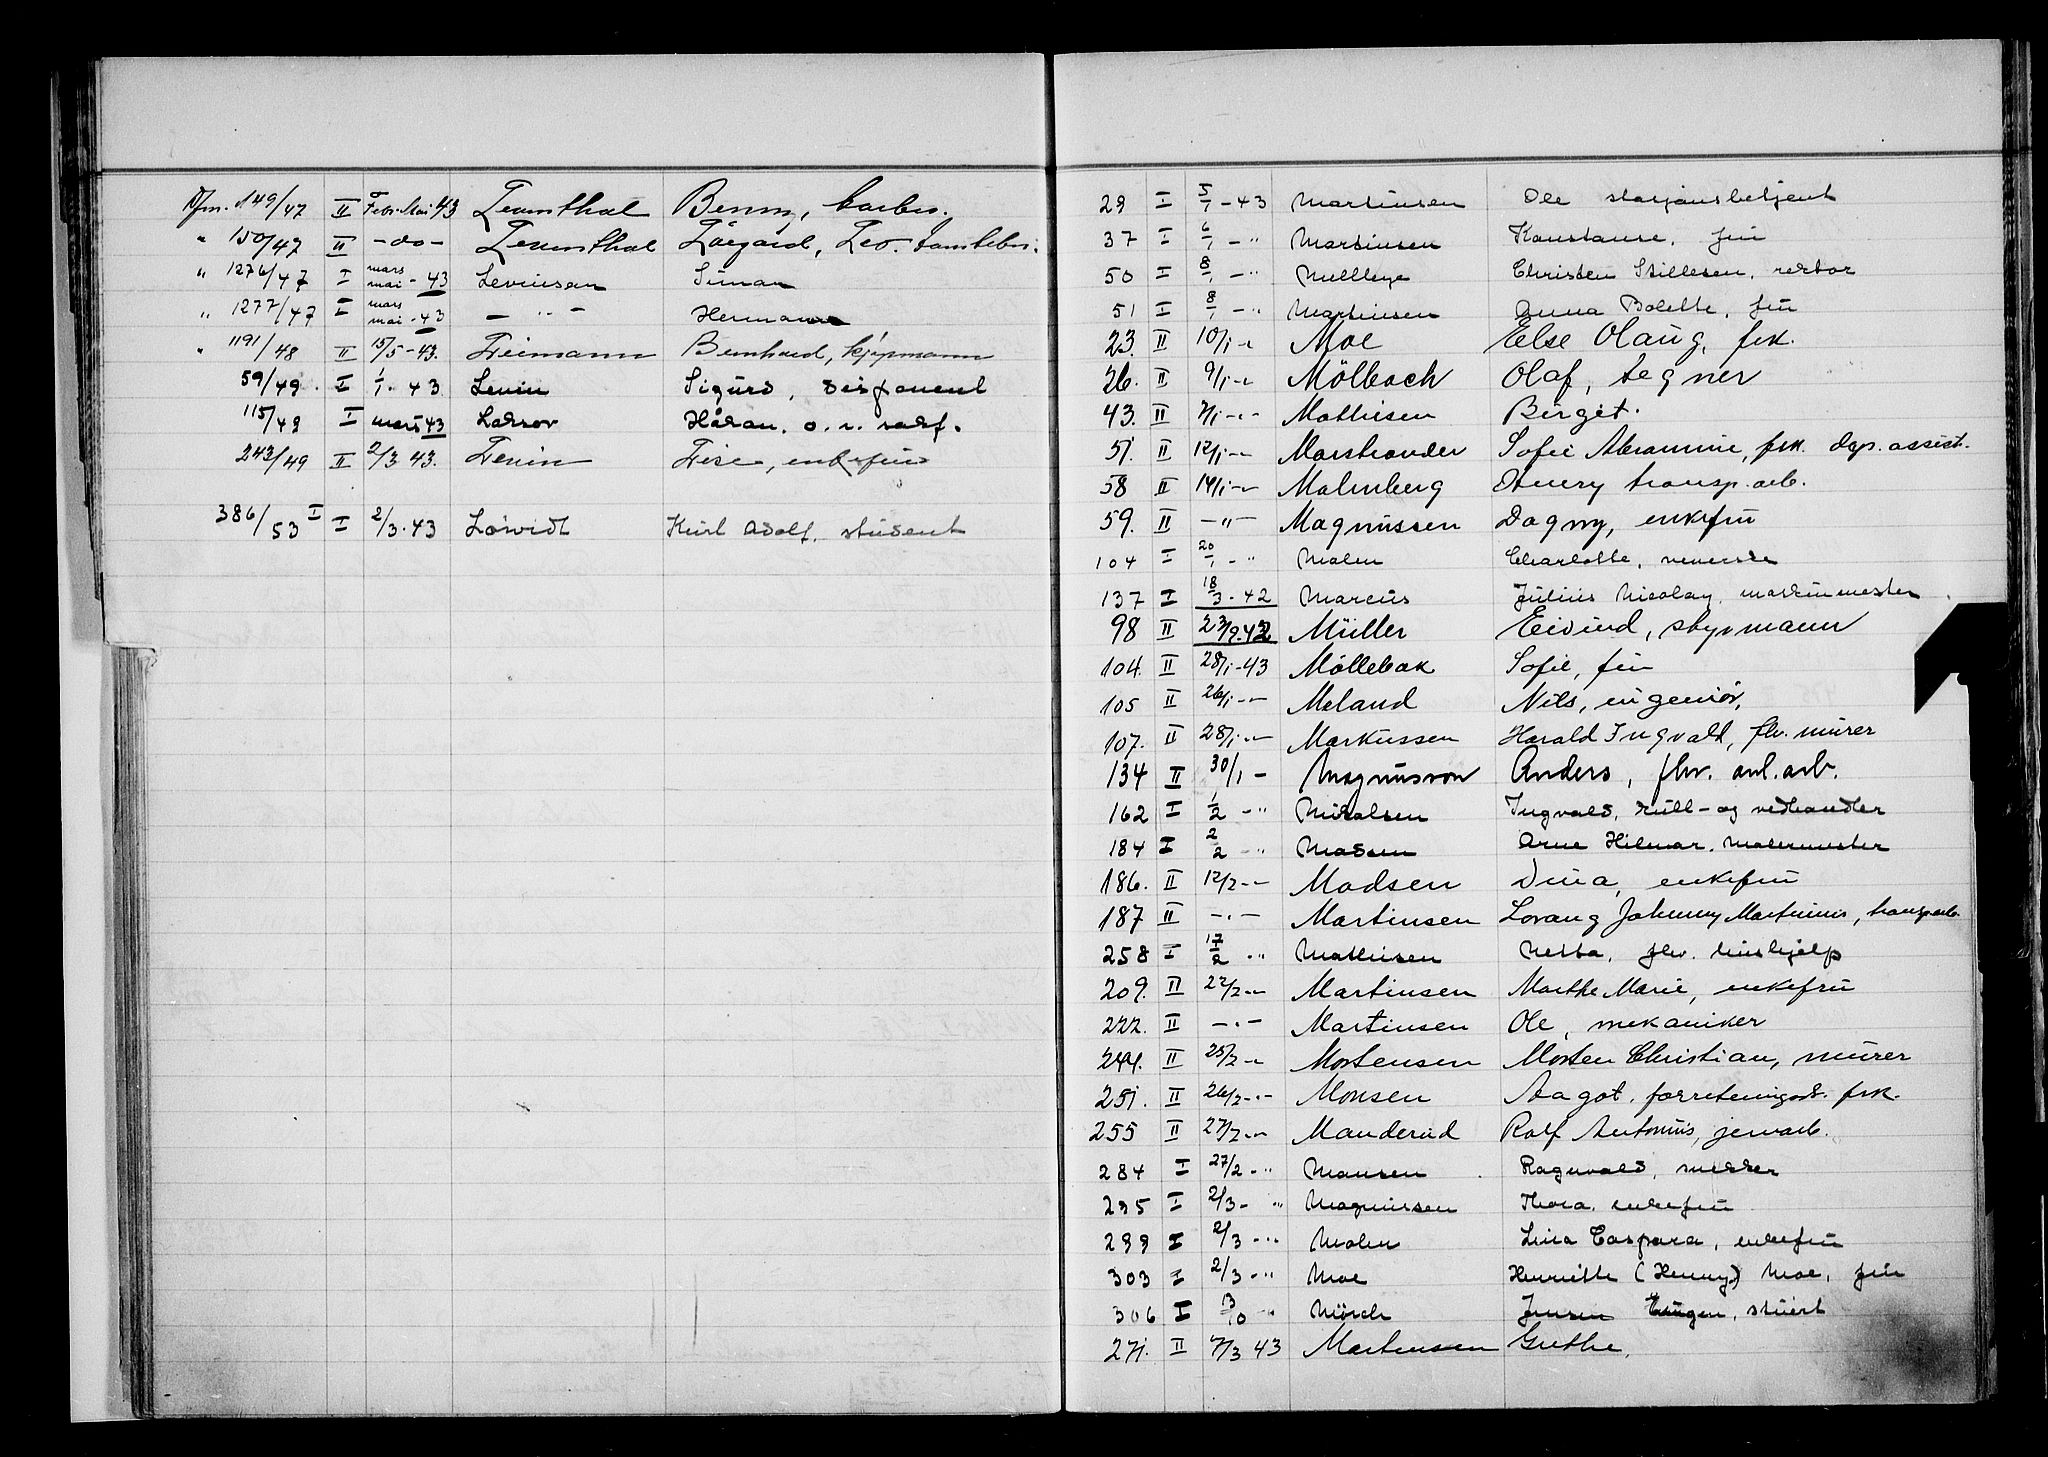 Dfm. 149/47 II Febr. Mai 43 Leventhal Benny, barber.
" 150/47 II -do- Leventhal Leo
" 1276/47 I mars mai - 43 Levinsen Simon
" 1277/47 I mars mai - 43 - " - Hermann
" 1191/48 II 15/5-43. Leimann Bernhard, kjøpmann
59/49. I 1/1. 43 Levin Sigurd, disponent
115/49 I mars 43 Håkon, o.r. sakf.
243/49 II 2/3 43. Levin Lise, enkefru
386/53 I I 2/3.43 Kurt Adolf, student
29 I 5/1 - 43 Martinsen Ole stasjonsbetjent
37 I 6/1 - " Martinsen Konstanse, fru
50 I 8/1 - " Mellbye Christen Stillesen, rektor
51 I 8/1 - " Martinsen Anna Bolette, fru
23. II 10/1 - " Moe Else Olaug, frk.
26. II 9/1 - " Mölbach Olaf, tegner
43. II 7/1 - " Mathisen Birgit.
51. II 12/1 - " Marstrander Sofie Abramine, frk. dep. assist.
58 II 14/1 - " Malmberg Henry transp. arb.
59. II - " - Magnussen Dagny, enkefru
104 I 20/1 - " Malm Charlotte, veverske
137 I 18/3 - 42 Marcus Julius Nicolay, maskinmester
98 II 23/9.42 Müller Eivind, styrmann
104. II 28/1-43 Möllebak Sofie, fru
105 II 26/1 - " Meland Nils, ingeniör,
107. II II 28/1 - " Markussen Harald Ingvald, fhv. murer
134 II 30/1 - Magnusson Anders, fhv. anl. arb.
162 I 1/2 - " Mikalsen Ingvald, kull- og vedhandler
184 I 2/2 - " Madsen Arne Hilmar, malermester
186. II 12/2 - " Madsen Dina, enkefru
187 II - " - Martinsen Lorang Johnny Martinius, transparb.
258 I 17/2 - " Mathisen Netta, fhv. hushjelp
209. II 22/2 - " Martinsen Marthe Marie, enkefru
222. II - " - Martinsen Ole, mekaniker
244. II 25/2 - " Mortensen Morten Christian, murer
251. II 26/2 - " Monsen Aagot, forretningsdr. frk.
255 II 27/2 - " Manderud Rolf Antonius, jernarb.
284 I 27/2 - " Monsen Ragnvald, snekker
295 I 2/3 - " Magnussen Thora, enkefru
299 I 2/3 - " Malm Lina Caspara, enkefru
303 I 2/3 - " Moe Henriette (Henny) Moe, fru
306 I 13/10 - " Mörch Jensen Haugen, stuert
271. II 7/3 43 Martensen Grethe.